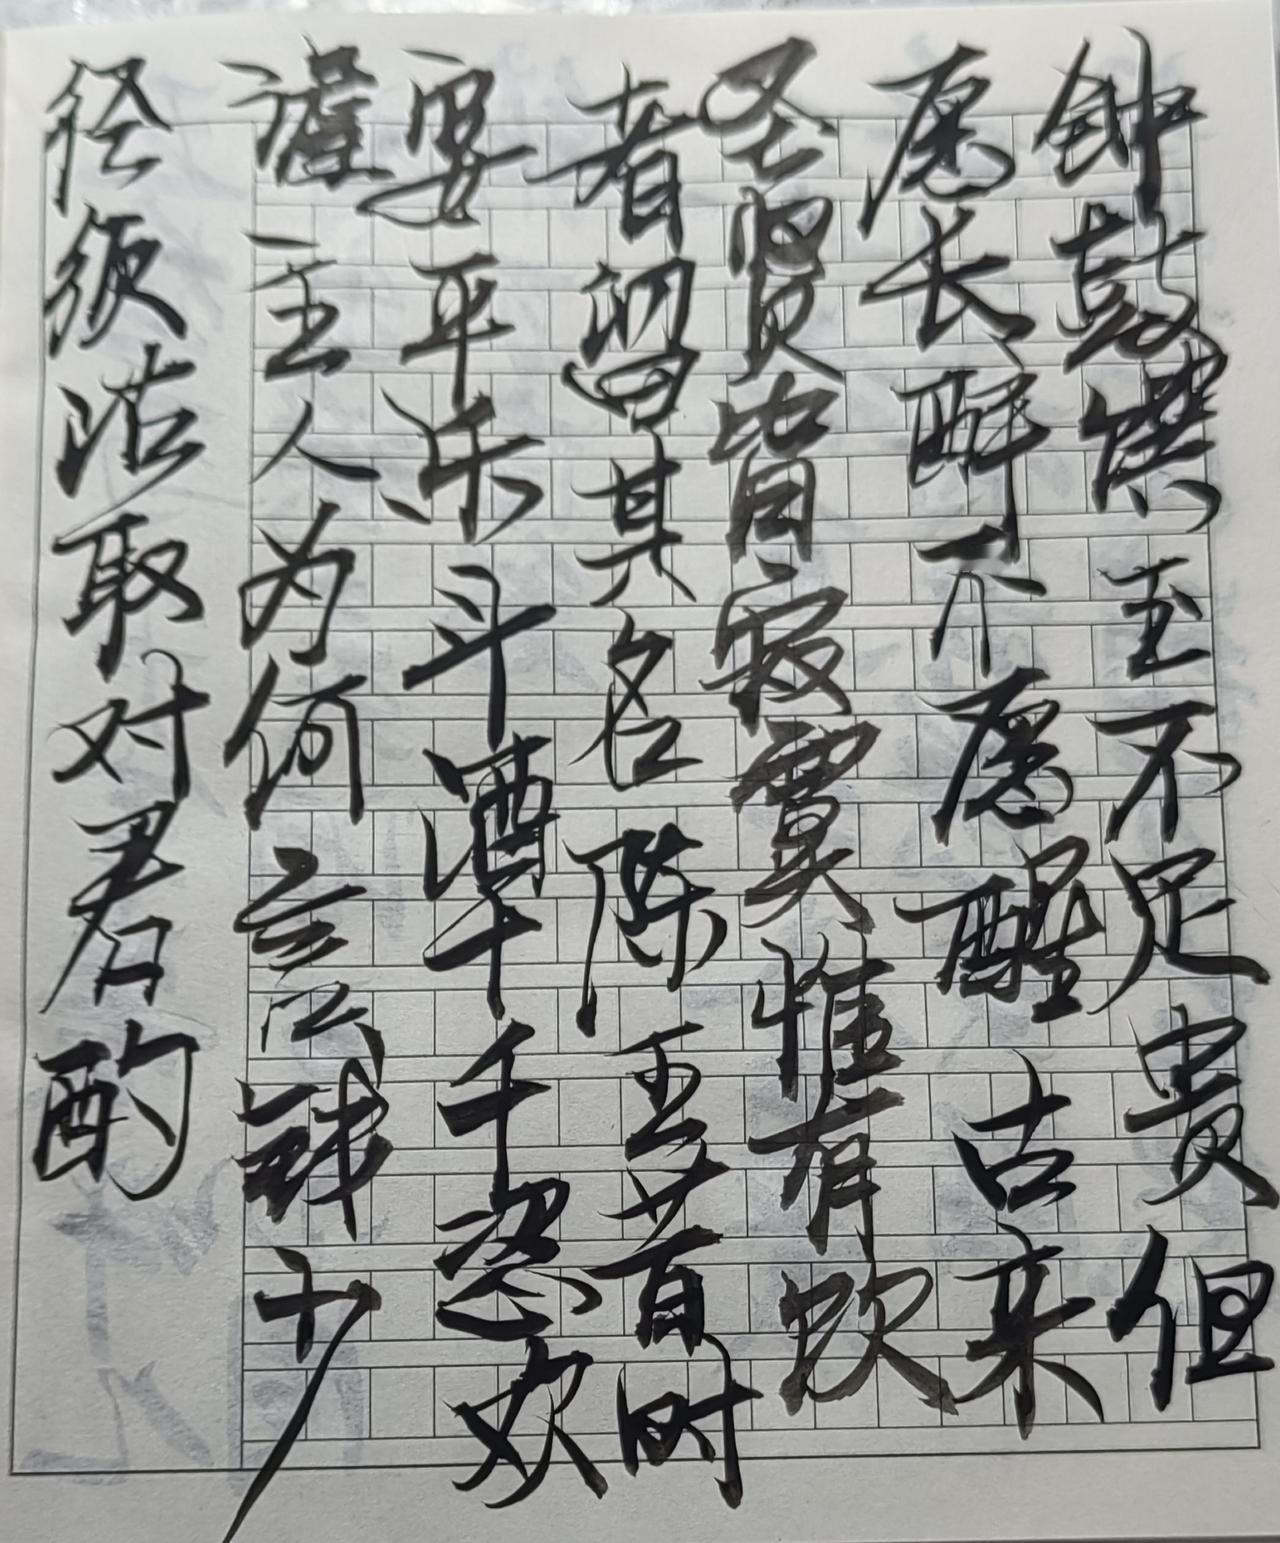 钟鼓馔玉不足贵但
愿长醉不愿醒古来
圣贤皆寂寞惟有饮
者留其名陈王昔时
宴平乐斗酒十千恣欢
谑主人为何言钱少
径须沽取对君酌